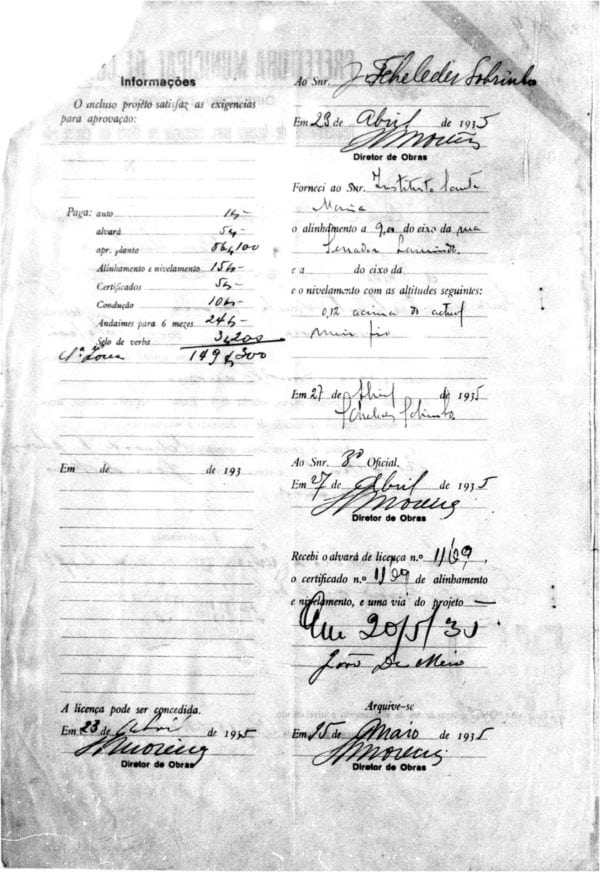 Informações
O incluso projeto satisfaz as exigencias
para aprovação:
Paga: auto 1$-
alvará 5$-
apr. planta
Alinhamento e nivelamento 15$-
Certificados 5$-
Condução 10$-
Andaimes para 6 mezes 24$-
Selo de verba 3$200
149$300
Em de de 193
A licença pode ser concedida.
Em 23 de Abril de 1935
HMoreira
Diretor de Obras
Ao Snr. J Scheleder Sobrinho
Em 23 de Abril de 1935
HMoreira
Diretor de Obras
Forneci ao Snr. Instituto Santa
Maria
o alinhamento a 9,00 do eixo da rua
Senador Laurindo
e a do eixo da
e o nivelamento com as altitudes seguintes:
0,12 acima do actual
meio fio
Em 27 de Abril de 1935
Scheleder Sobrinho
Ao Snr. 3º Oficial.
Em 27 de Abril de 1935
HMoreira
Diretor de Obras
Recebi o alvará de licença n.º
o certificado n.º de alinhamento
e nivelamento, e uma via do projeto —
Em 20/5/35
João De Mio
Arquive-se
Em 25 de Maio de 1935
HMoreira
Diretor de Obras